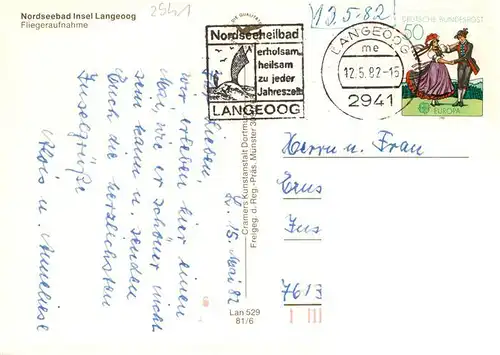 Nordseebad Insel Langeoog
Fliegeraufnahme
2941
13.5.82
Nordseeheilbad
erholsam,
heilsam
zu jeder
Jahreszeit
LANGEOOG
LANGEOOG
me
12.5.82-15
2941
DEUTSCHE BUNDESPOST
50
EUROPA
Ihr Lieben,
L. 15. Mai 82
wir erleben hier einen
Mai, wie er schöner nicht
sein kann u. senden
Euch die herzlichsten
Inselgrüße
Alois u. Anneliese
Cramers Kunstanstalt Dortmund
Freigeg. d. Reg.-Präs. Münster
Lan 529
81/6
Herrn u. Frau
7613